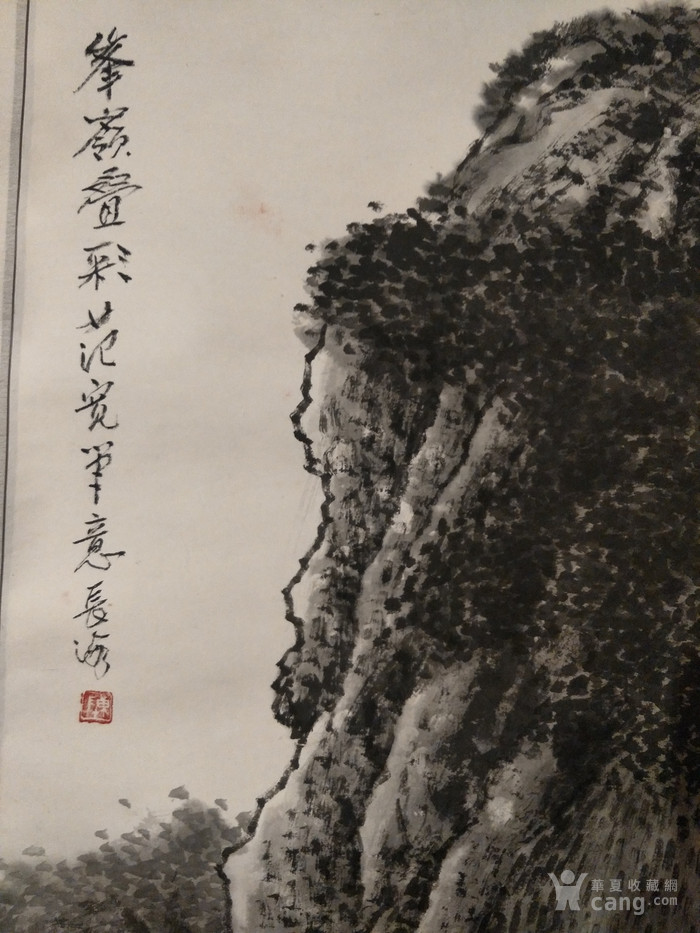 峯嶺叠彩范寬筆意長海
華夏收藏網
cang.com